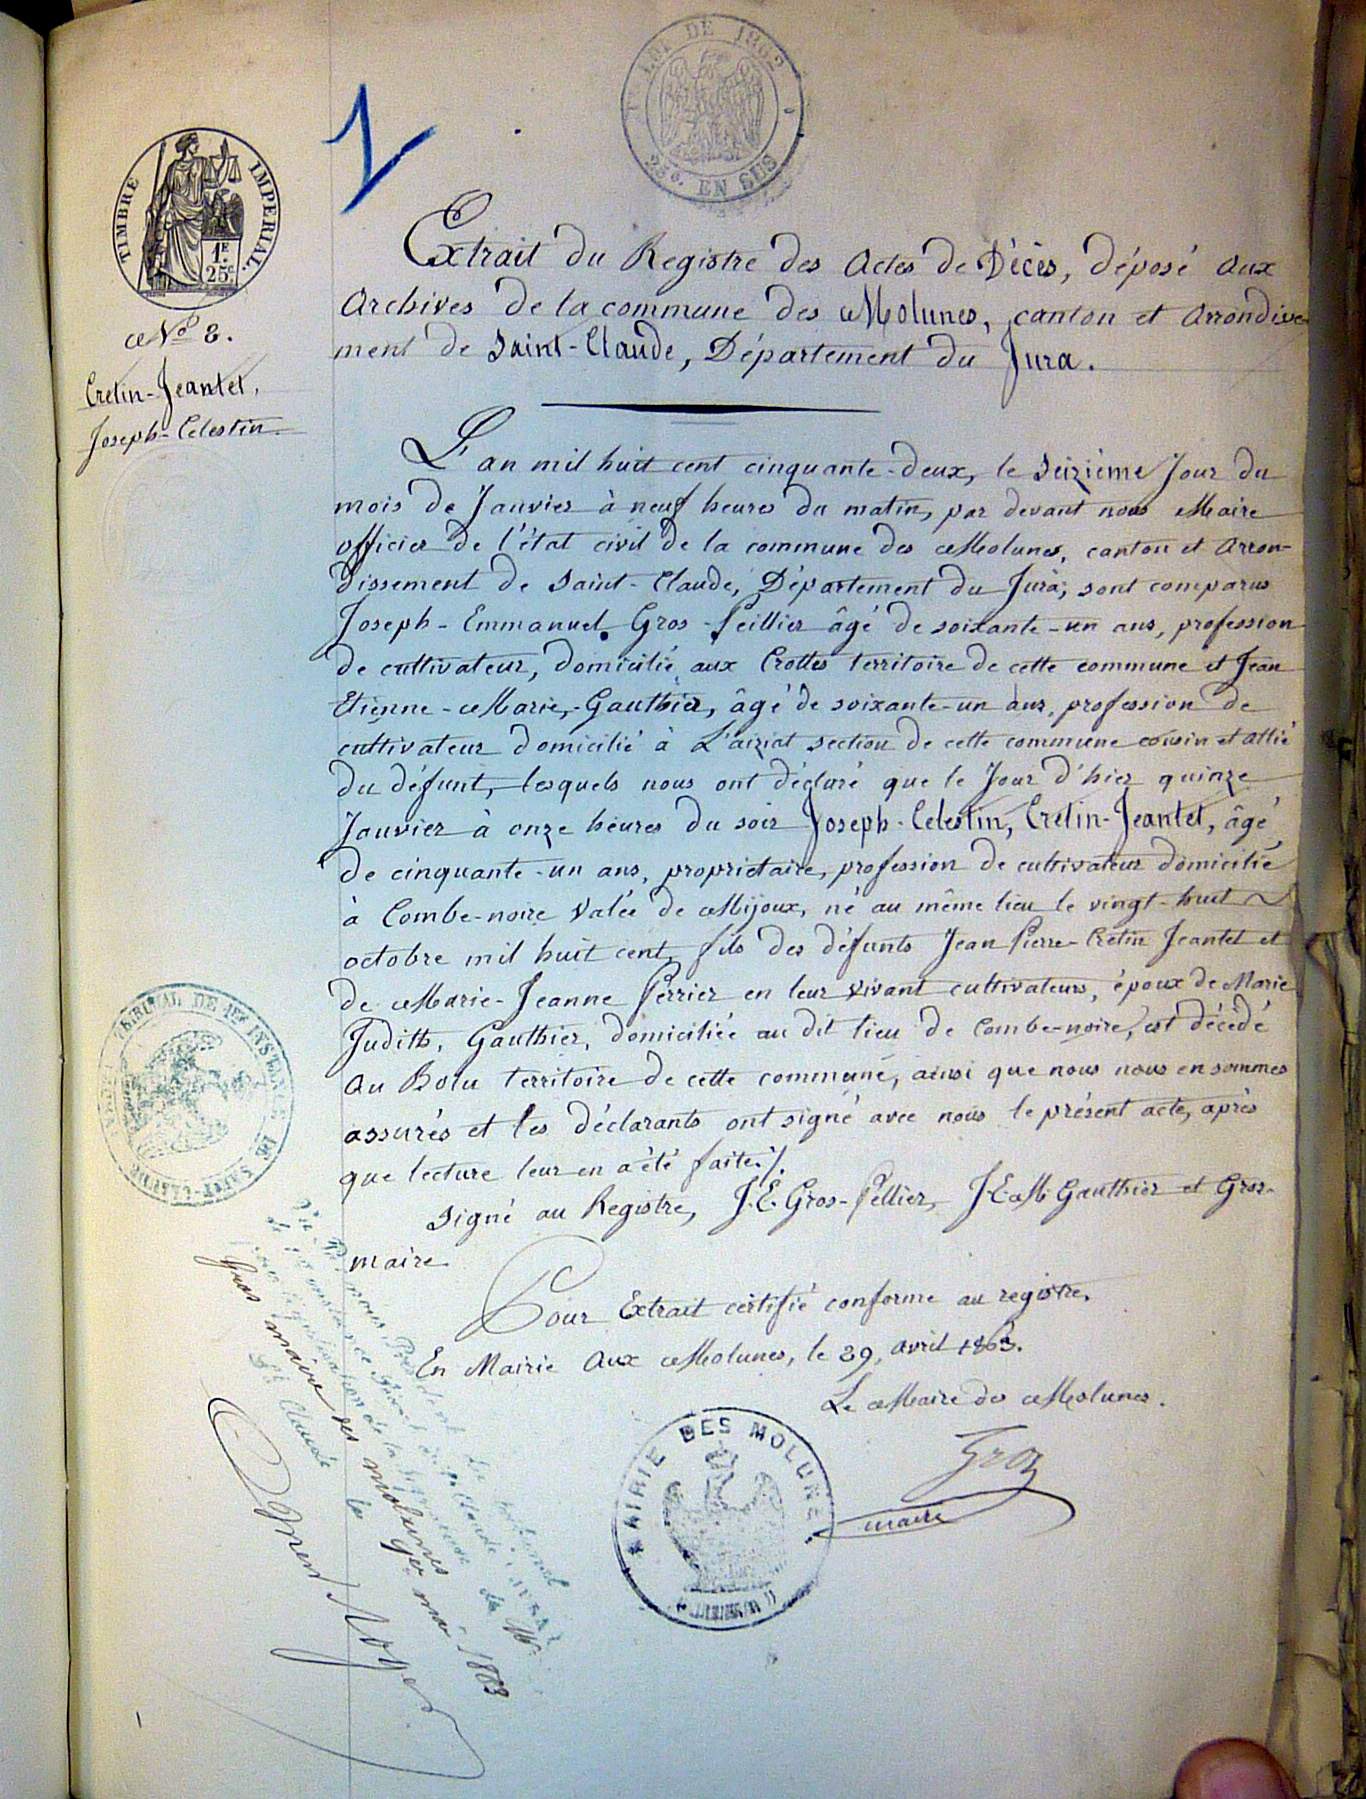 LOI DE 1862
25c. EN SUS
TIMBRE IMPERIAL.
1F.
25c
2
Extrait du Registre des Actes de Décès, déposé aux
Archives de la commune des Molunes, canton et Arrondisse-
ment de Saint-Claude, Département du Jura.
No 8.
Cretin-Jeantet,
Joseph-Celestin.
L'an mil huit cent cinquante-deux, le seizième Jour du
mois de Janvier à neuf heures du matin, par devant nous Maire
officier de l'état civil de la commune des Molunes, canton et Arron-
dissement de Saint-Claude, Département du Jura; sont comparus
Joseph-Emmanuel Gros-Peillier âgé de soixante-un ans, profession
de cultivateur, domicilié aux Crottes territoire de cette commune et Jean
Etienne-Marie-Gauthier, âgé de soixante-un ans, profession de
cultivateur domicilié à L'aiziat section de cette commune cousin et allié
du défunt, lesquels nous ont déclaré que le Jour d'hier quinze
Janvier à onze heures du soir Joseph-Celestin, Cretin-Jeantet, âgé
de cinquante-un ans, propriétaire, profession de cultivateur domicilié
à Combe-noire Valée de Mijoux, né au même lieu le vingt-huit
octobre mil huit cent, fils des défunts Jean Pierre-Cretin Jeantet et
de Marie-Jeanne Perrier en leur vivant cultivateurs, époux de Marie
Judith, Gauthier, domiciliée au dit lieu de Combe-noire, est décédé
au Bolu territoire de cette commune, ainsi que nous nous en sommes
assurés et les déclarants ont signé avec nous le présent acte, après
que lecture leur en a été faite./.
Signé au Registre, J.E. Gros-Pellier, J-E-M Gauthier et Gros-
maire
Pour Extrait certifié conforme au registre.
En Mairie aux Molunes, le 29, avril 1863.
Le Maire des Molunes.
Groz
maire
MAIRIE DES MOLUNES.
TRIBUNAL DE 1ère INSTANCE DE SAINT-CLAUDE
Gros maire des molunes
St Claude le
1er mai 1863